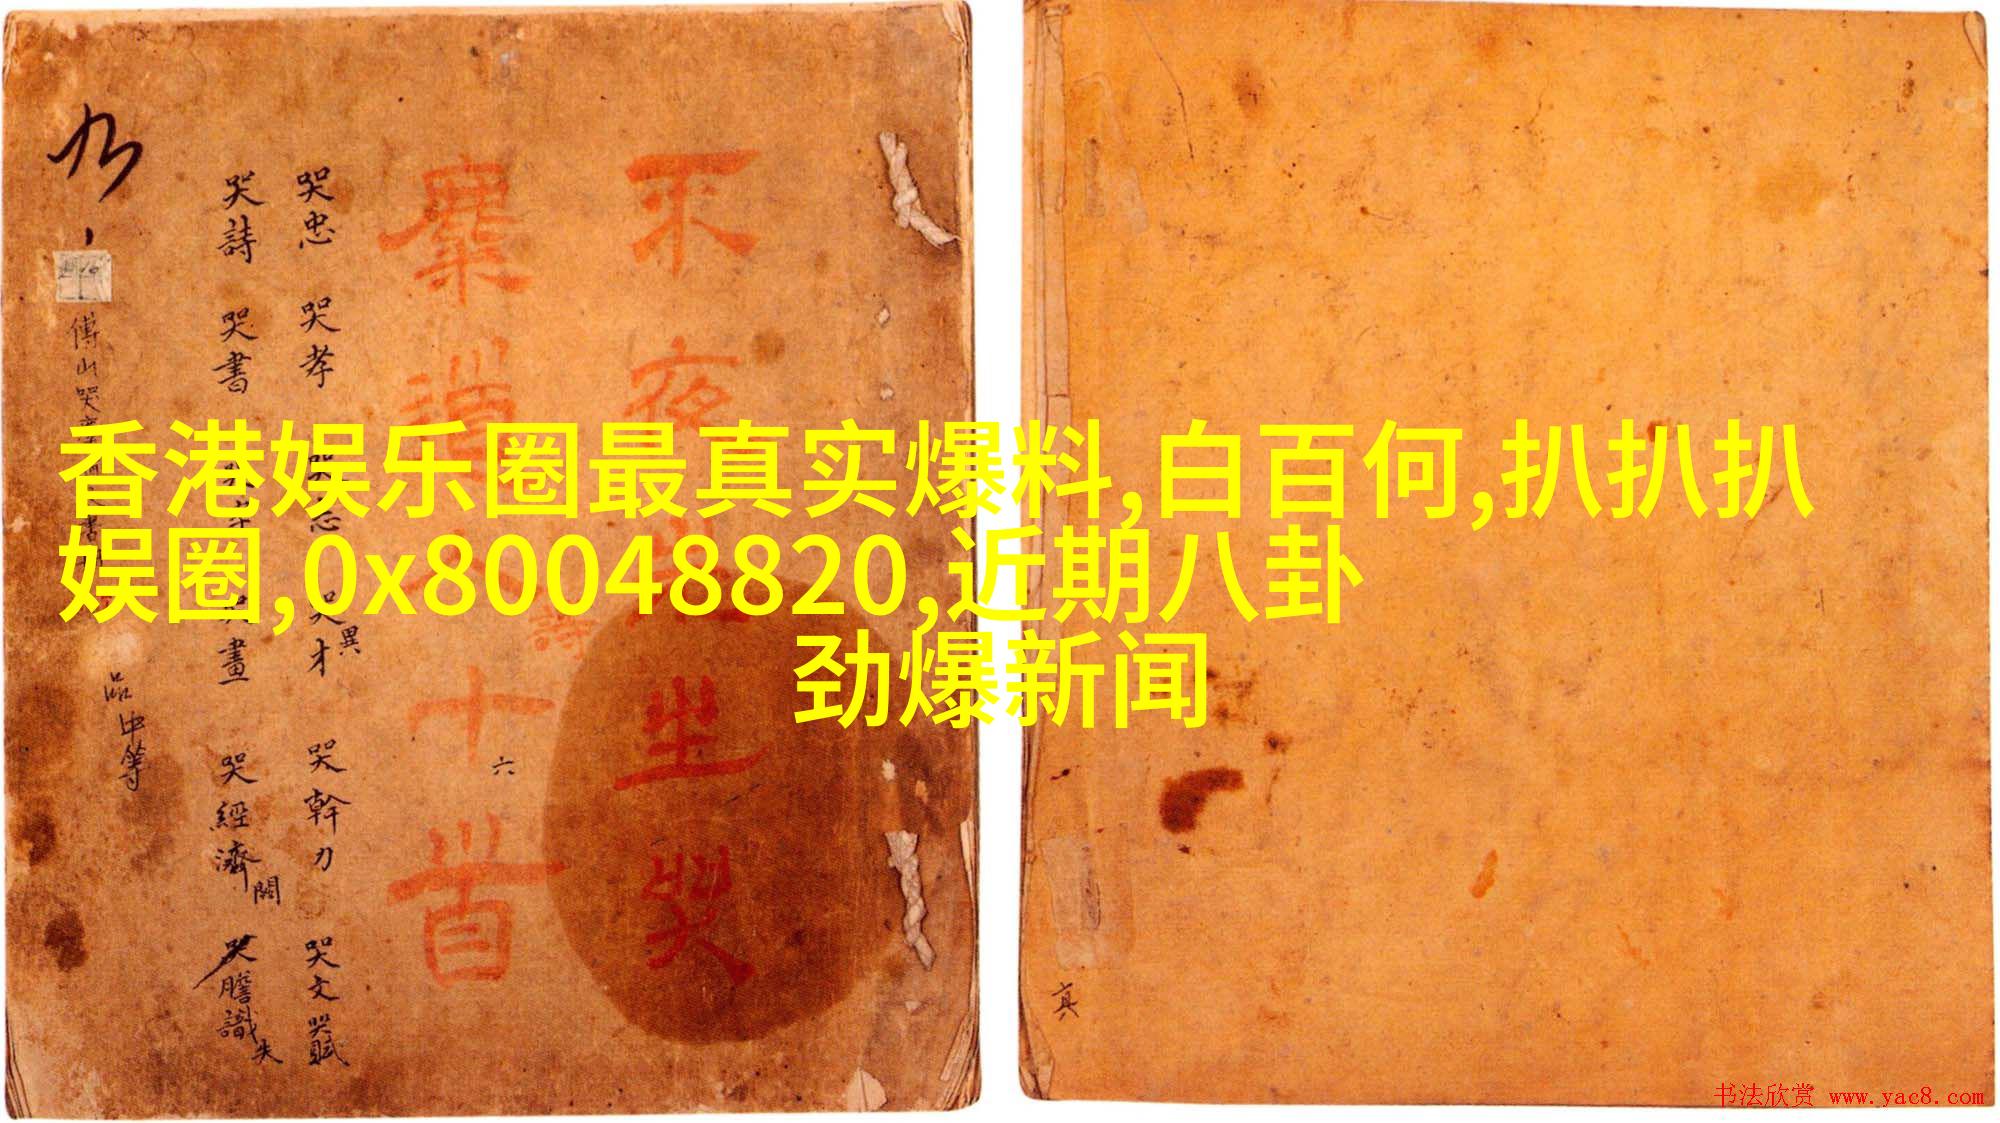 香港娱乐圈最真实爆料,白百何,扒扒扒
娱圈,0x80048820,近期八卦
劲爆新闻
不夜
坐哭
糜道
十首
詩
六
哭忠 哭孝
哭才
異
哭幹力
哭文 哭賦
哭詩 哭書
畫
哭經濟
關
哭膽識
失
傅山哭
品中等
真
书法欣赏 www.yac8.com